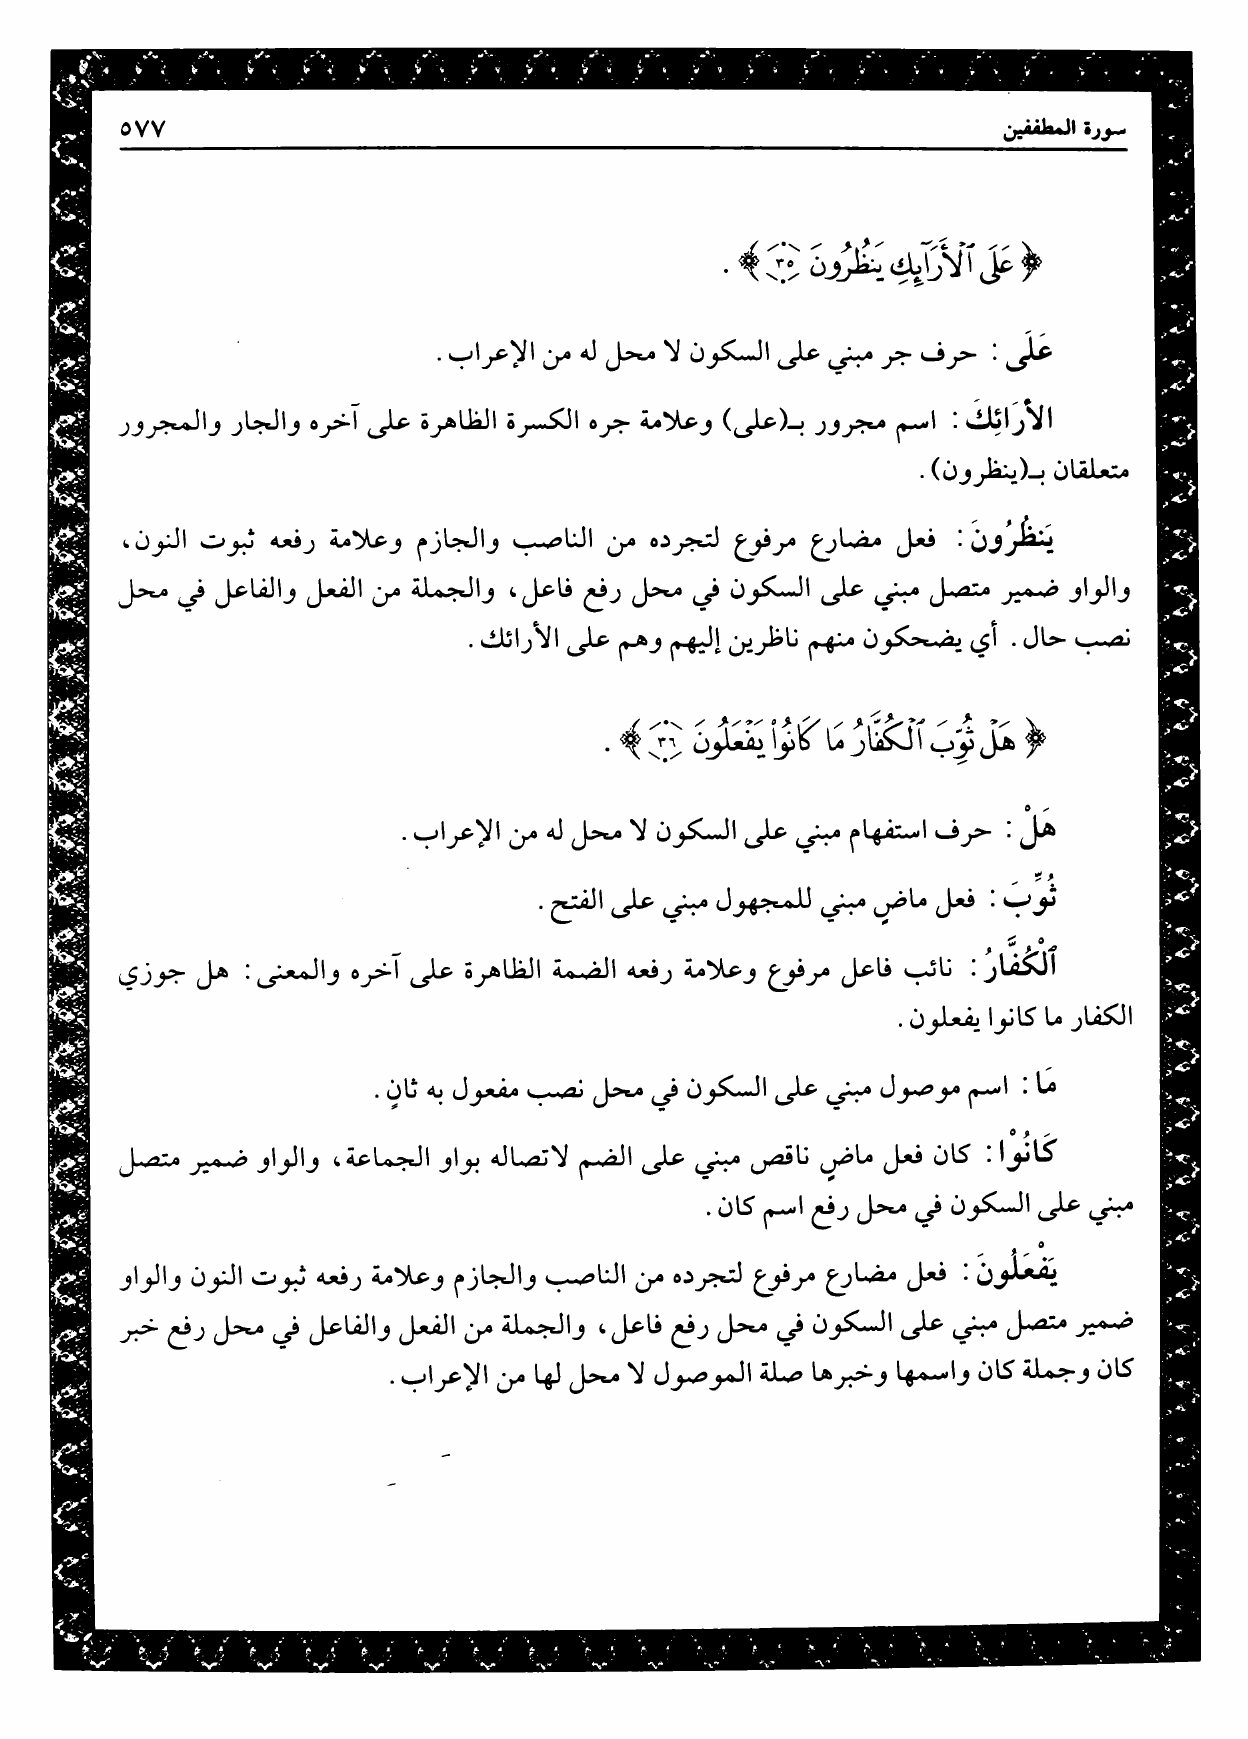 سورة المطففين ٥٧٧
﴿ عَلَى ٱلْأَرَآئِكِ يَنظُرُونَ ٣٥ ﴾ .
عَلَى : حرف جر مبني على السكون لا محل له من الإعراب .
الأرَائِكَ : اسم مجرور بـ(على) وعلامة جره الكسرة الظاهرة على آخره والجار والمجرور
متعلقان بـ(ينظرون) .
يَنظُرُونَ : فعل مضارع مرفوع لتجرده من الناصب والجازم وعلامة رفعه ثبوت النون،
والواو ضمير متصل مبني على السكون في محل رفع فاعل، والجملة من الفعل والفاعل في محل
نصب حال . أي يضحكون منهم ناظرين إليهم وهم على الأرائك .
﴿ هَلْ ثُوِّبَ ٱلْكُفَّارُ مَا كَانُوا۟ يَفْعَلُونَ ٣٦ ﴾ .
هَلْ : حرف استفهام مبني على السكون لا محل له من الإعراب .
ثُوِّبَ : فعل ماضٍ مبني للمجهول مبني على الفتح .
ٱلْكُفَّارُ : نائب فاعل مرفوع وعلامة رفعه الضمة الظاهرة على آخره والمعنى : هل جوزي
الكفار ما كانوا يفعلون .
مَا : اسم موصول مبني على السكون في محل نصب مفعول به ثانٍ .
كَانُوْا : كان فعل ماضٍ ناقص مبني على الضم لاتصاله بواو الجماعة، والواو ضمير متصل
مبني على السكون في محل رفع اسم كان .
يَفْعَلُونَ : فعل مضارع مرفوع لتجرده من الناصب والجازم وعلامة رفعه ثبوت النون والواو
ضمير متصل مبني على السكون في محل رفع فاعل، والجملة من الفعل والفاعل في محل رفع خبر
كان وجملة كان واسمها وخبرها صلة الموصول لا محل لها من الإعراب .